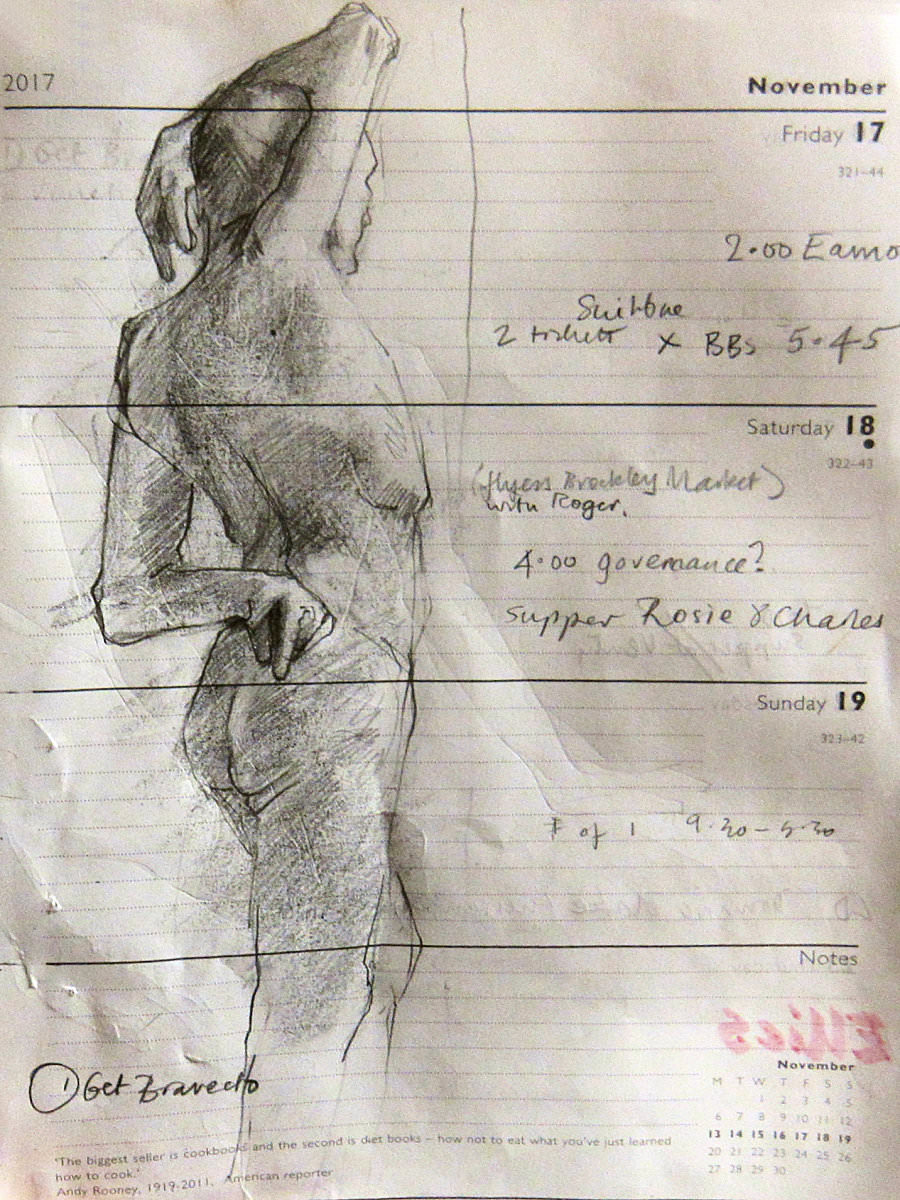 2017
November
Friday 17
321-44
2.00 Eamo
2 x BBs 5.45
Saturday 18
322-43
(flyers Brockley Market)
with Roger.
4.00 governance?
supper Rosie & Charles
Sunday 19
323-42
F of 1 9.30 - 5.30
Notes
Ellies
November
M T W T F S S
1 2 3 4 5
6 7 8 9 10 11 12
13 14 15 16 17 18 19
20 21 22 23 24 25 26
27 28 29 30
1 Get Bravecto
'The biggest seller is cookbooks and the second is diet books – how not to eat what you've just learned
how to cook.'
Andy Rooney, 1919-2011, American reporter